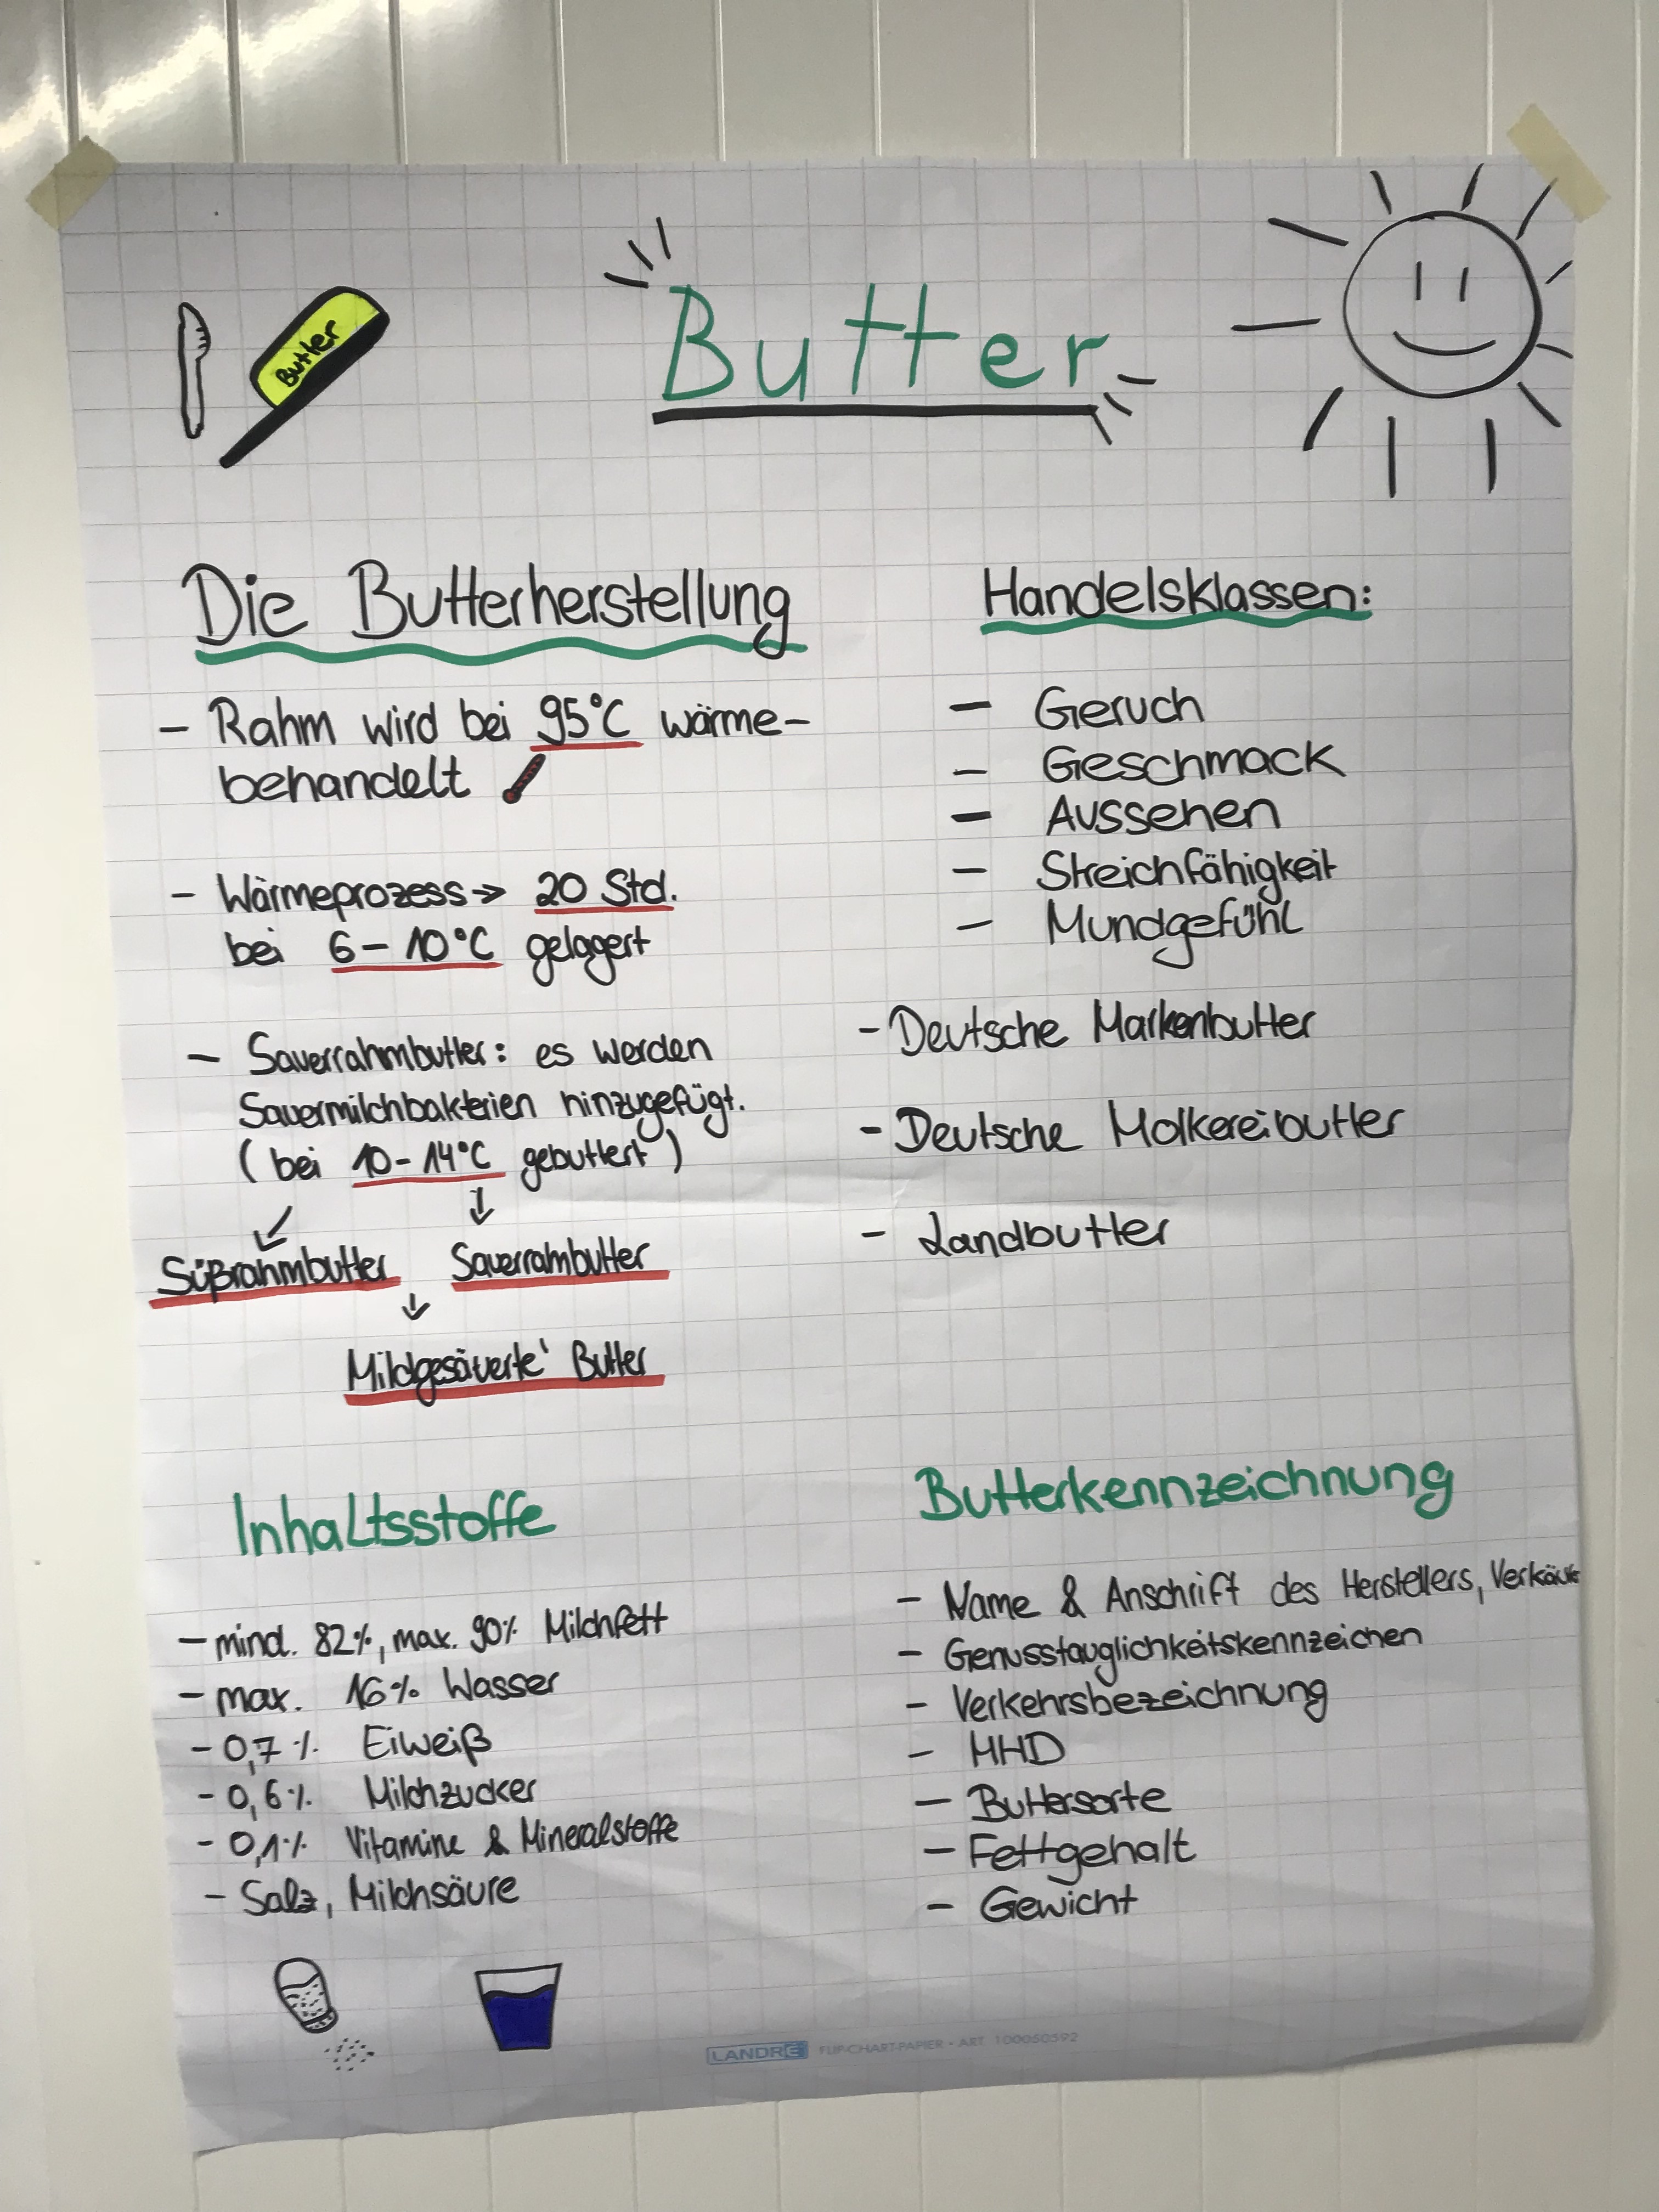 Butter
Butter
Die Butterherstellung
- Rahm wird bei 95°C wärme-
behandelt
- Wärmeprozess → 20 Std.
bei 6 - 10°C gelagert
- Sauerrahmbutter: es werden
Sauermilchbakterien hinzugefügt.
(bei 10 - 14°C gebuttert)
↙ ↓
Süßrahmbutter Sauerrambutter
↓
Mildgesäuerte' Butter
Handelsklassen:
- Geruch
- Geschmack
- Aussehen
- Streichfähigkeit
- Mundgefühl
- Deutsche Markenbutter
- Deutsche Molkereibutter
- Landbutter
Inhaltsstoffe
- mind. 82%, max. 90% Milchfett
- max. 16% Wasser
- 0,7% Eiweiß
- 0,6% Milchzucker
- 0,1% Vitamine & Mineralstoffe
- Salz, Milchsäure
Butterkennzeichnung
- Name & Anschrift des Herstellers,
- Genusstauglichkeitskennzeichen
- Verkehrsbezeichnung
- MHD
- Buttersorte
- Fettgehalt
- Gewicht
LANDRÉ FLIP-CHART-PAPIER • ART. 100050592